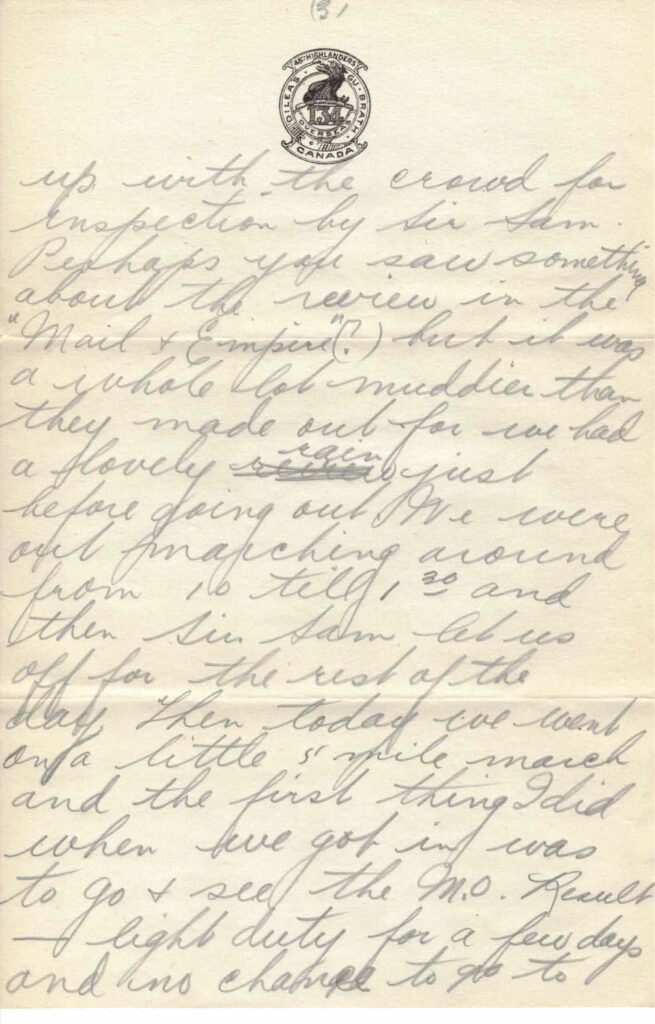 (3)
48TH HIGHLANDERS
DILEAS · GU · BRATH
134
OVERSEAS
CANADA
up with the crowd for
inspection by Sir Sam.
Perhaps you saw something
about the review in the
"Mail & Empire"(?) but it was
a whole lot muddier than
they made out for we had
a lovely review rain just
before going out. We were
out marching around
from 10 till 1 30 and
then Sir Sam let us
off for the rest of the
day. Then today we went
on a little 5 mile march
and the first thing I did
when we got in was
to go & see the M.O. Result
— light duty for a few days
and no chance to go to